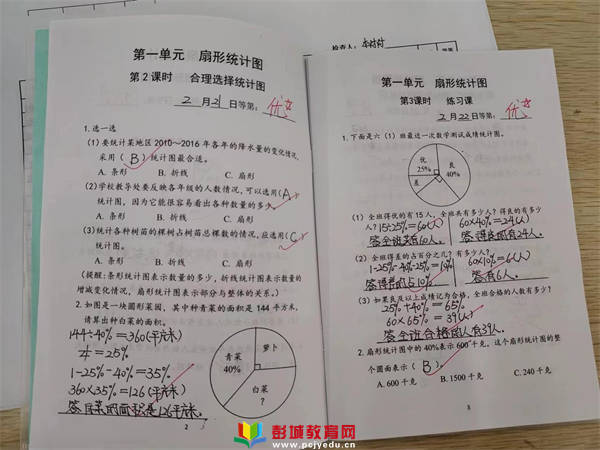 检查人：
第一单元 扇形统计图
第2课时 合理选择统计图
2月21日等第：优
1.选一选
(1)要统计某地区2010～2016年各年的降水量的变化情况,
采用(B)统计图最合适。
A.条形 B.折线 C.扇形
(2)学校教导处要反映各年级的人数情况,可以选用(A)
统计图,因为它能很容易看出各种数量的多少。
A.条形 B.折线 C.扇形
(3)统计各种树苗的棵树占树苗总棵数的情况,应选用(C)
统计图。
A.条形 B.折线 C.扇形
(提醒:条形统计图表示数量的多少,折线统计图表示数量的
增减变化情况,扇形统计图表示部分与整体的关系。)
2.如图是一块圆形菜园,其中种青菜的面积是144平方米,
请算出种白菜的面积。
144÷40%=360(平方米)
1/4=25%
1-25%-40%=35%
360×35%=126(平方米)
答:白菜的面积是126平方米。
青菜
40%
萝卜
白菜
?
2
第一单元 扇形统计图
第3课时 练习课
2月22日等第：优
1.下面是六(1)班最近一次数学测试成绩统计图。
优
25%
良
40%
差
(1)全班得优的有15人,全班共有多少人?得良的有多少
人?15÷25%=60(人) 60×40%=24(人)
答:全班共有60人。 答:得良的有24人。
(2)全班得差的占百分之几?有多少人?
1-25%-40%-25%=10% 60×10%=6(人)
答:得差的占10%。 答:有6人。
(3)如果良及以上成绩记为合格,全班合格的人数有多少?
25%+40%=65%
60×65%=39(人)
答:全班合格的人有39人。
2.扇形统计图中的40%表示600千克,这个扇形统计图的整
个圆面表示(B)。
A.600千克 B.1500千克 C.240千克
彭城教育网
www.pcjyedu.cn